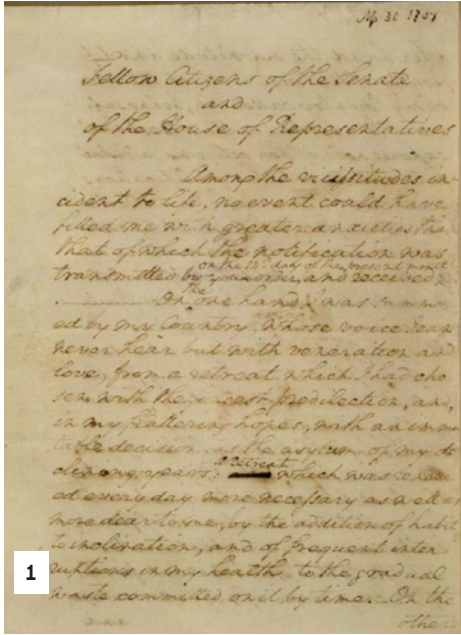 Ap 30 1789
Fellow Citizens of the Senate
and
of the House of Representatives
Among the vicissitudes in-
cident to life, no event could have
filled me with greater anxieties than
that of which the notification was
on the 14th day of the present month
transmitted by your order, and received
the
On one hand, I was summon
ed by my Country, whose voice I can
never hear but with veneration and
love, from a retreat which I had cho
sen with the fondest predilection, and,
in my flattering hopes, with an immu
table decision, as the asylum of my de
clining years: a retreat which was render
ed every day more necessary as well as
more dear to me, by the addition of habit
to inclination, and of frequent inter
ruptions in my health to the gradual
waste committed on it by time. On the
other
1